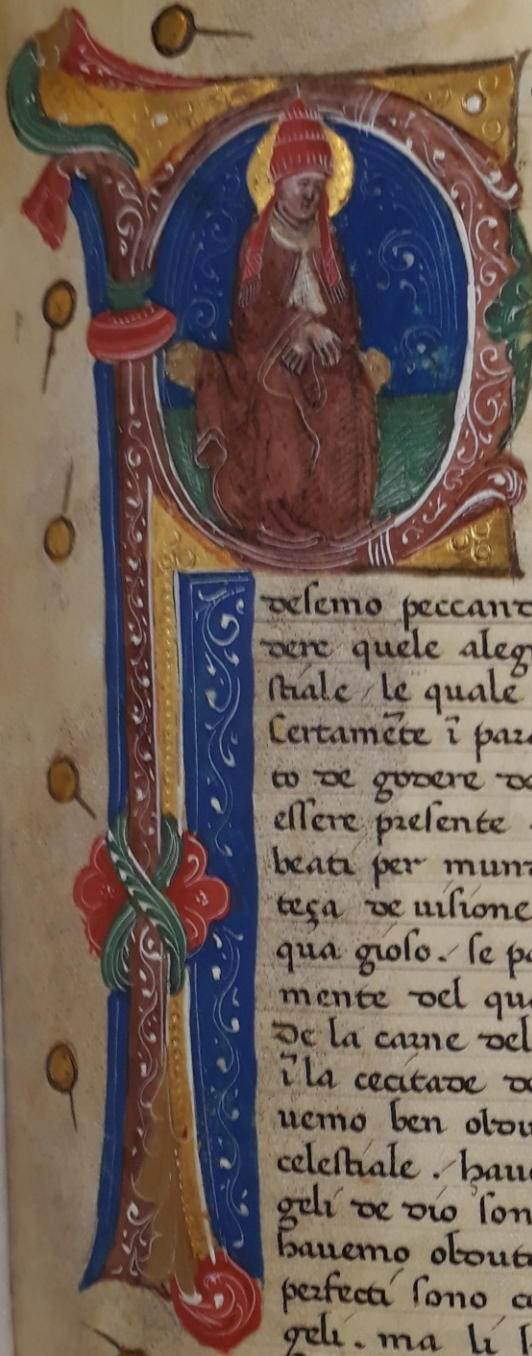 P
desemo peccand
dere quele aleg
stiale / le quale
Certamẽte ĩ para
to de godere de
essere presente
beati per mun
teça de uisione
qua gioso . / se pa
mente del qua
De la carne del
ĩ la cecitade de
uemo ben obdu
celestiale . / haue
geli de dio son
hauemo obdut
perfecti sono c
geli . ma li